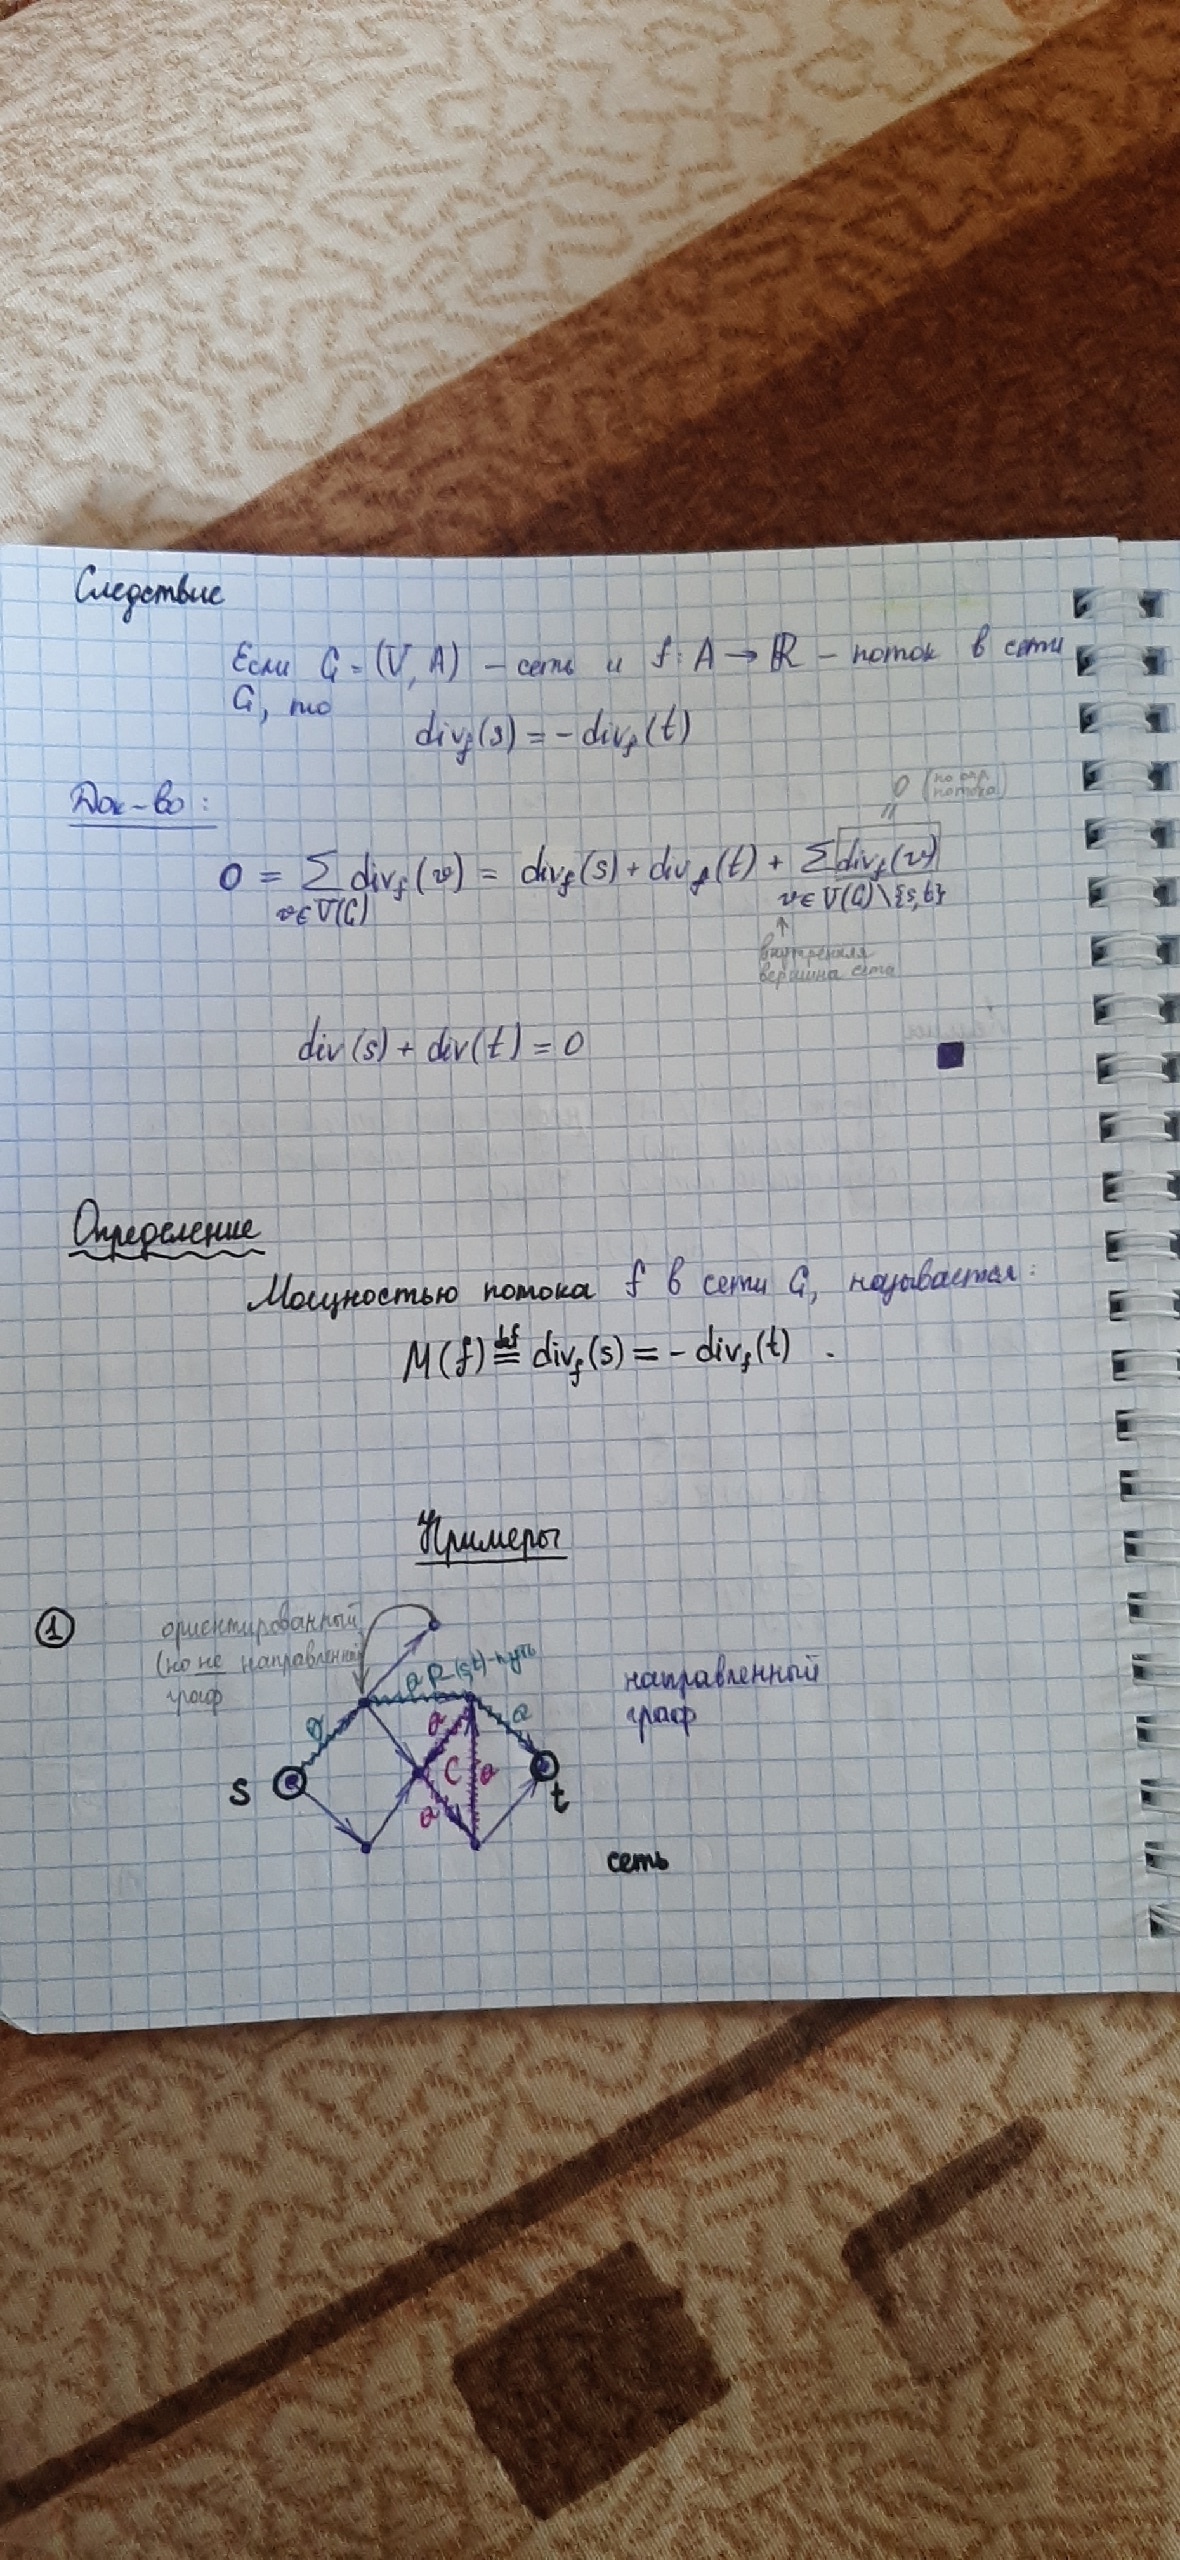 Следствие
Если G = (V, A) – сеть и f: A → ℝ – поток в сети
G, то
div_f(s) = - div_f(t)
Док-во:
0 (по опр. потока)
||
0 = Σ div_f(v) = div_f(s) + div_f(t) + Σ div_f(v)
v∈V(G) v∈V(G)\{s,t}
↑
внутренняя
вершина сети
div(s) + div(t) = 0
Определение
Мощностью потока f в сети G, называется:
M(f) ≝ div_f(s) = - div_f(t) .
Примеры
1
ориентированный
(но не направленный
граф
a P (s,t)-путь
направленный
граф
a a a
C a
a
s t
сеть